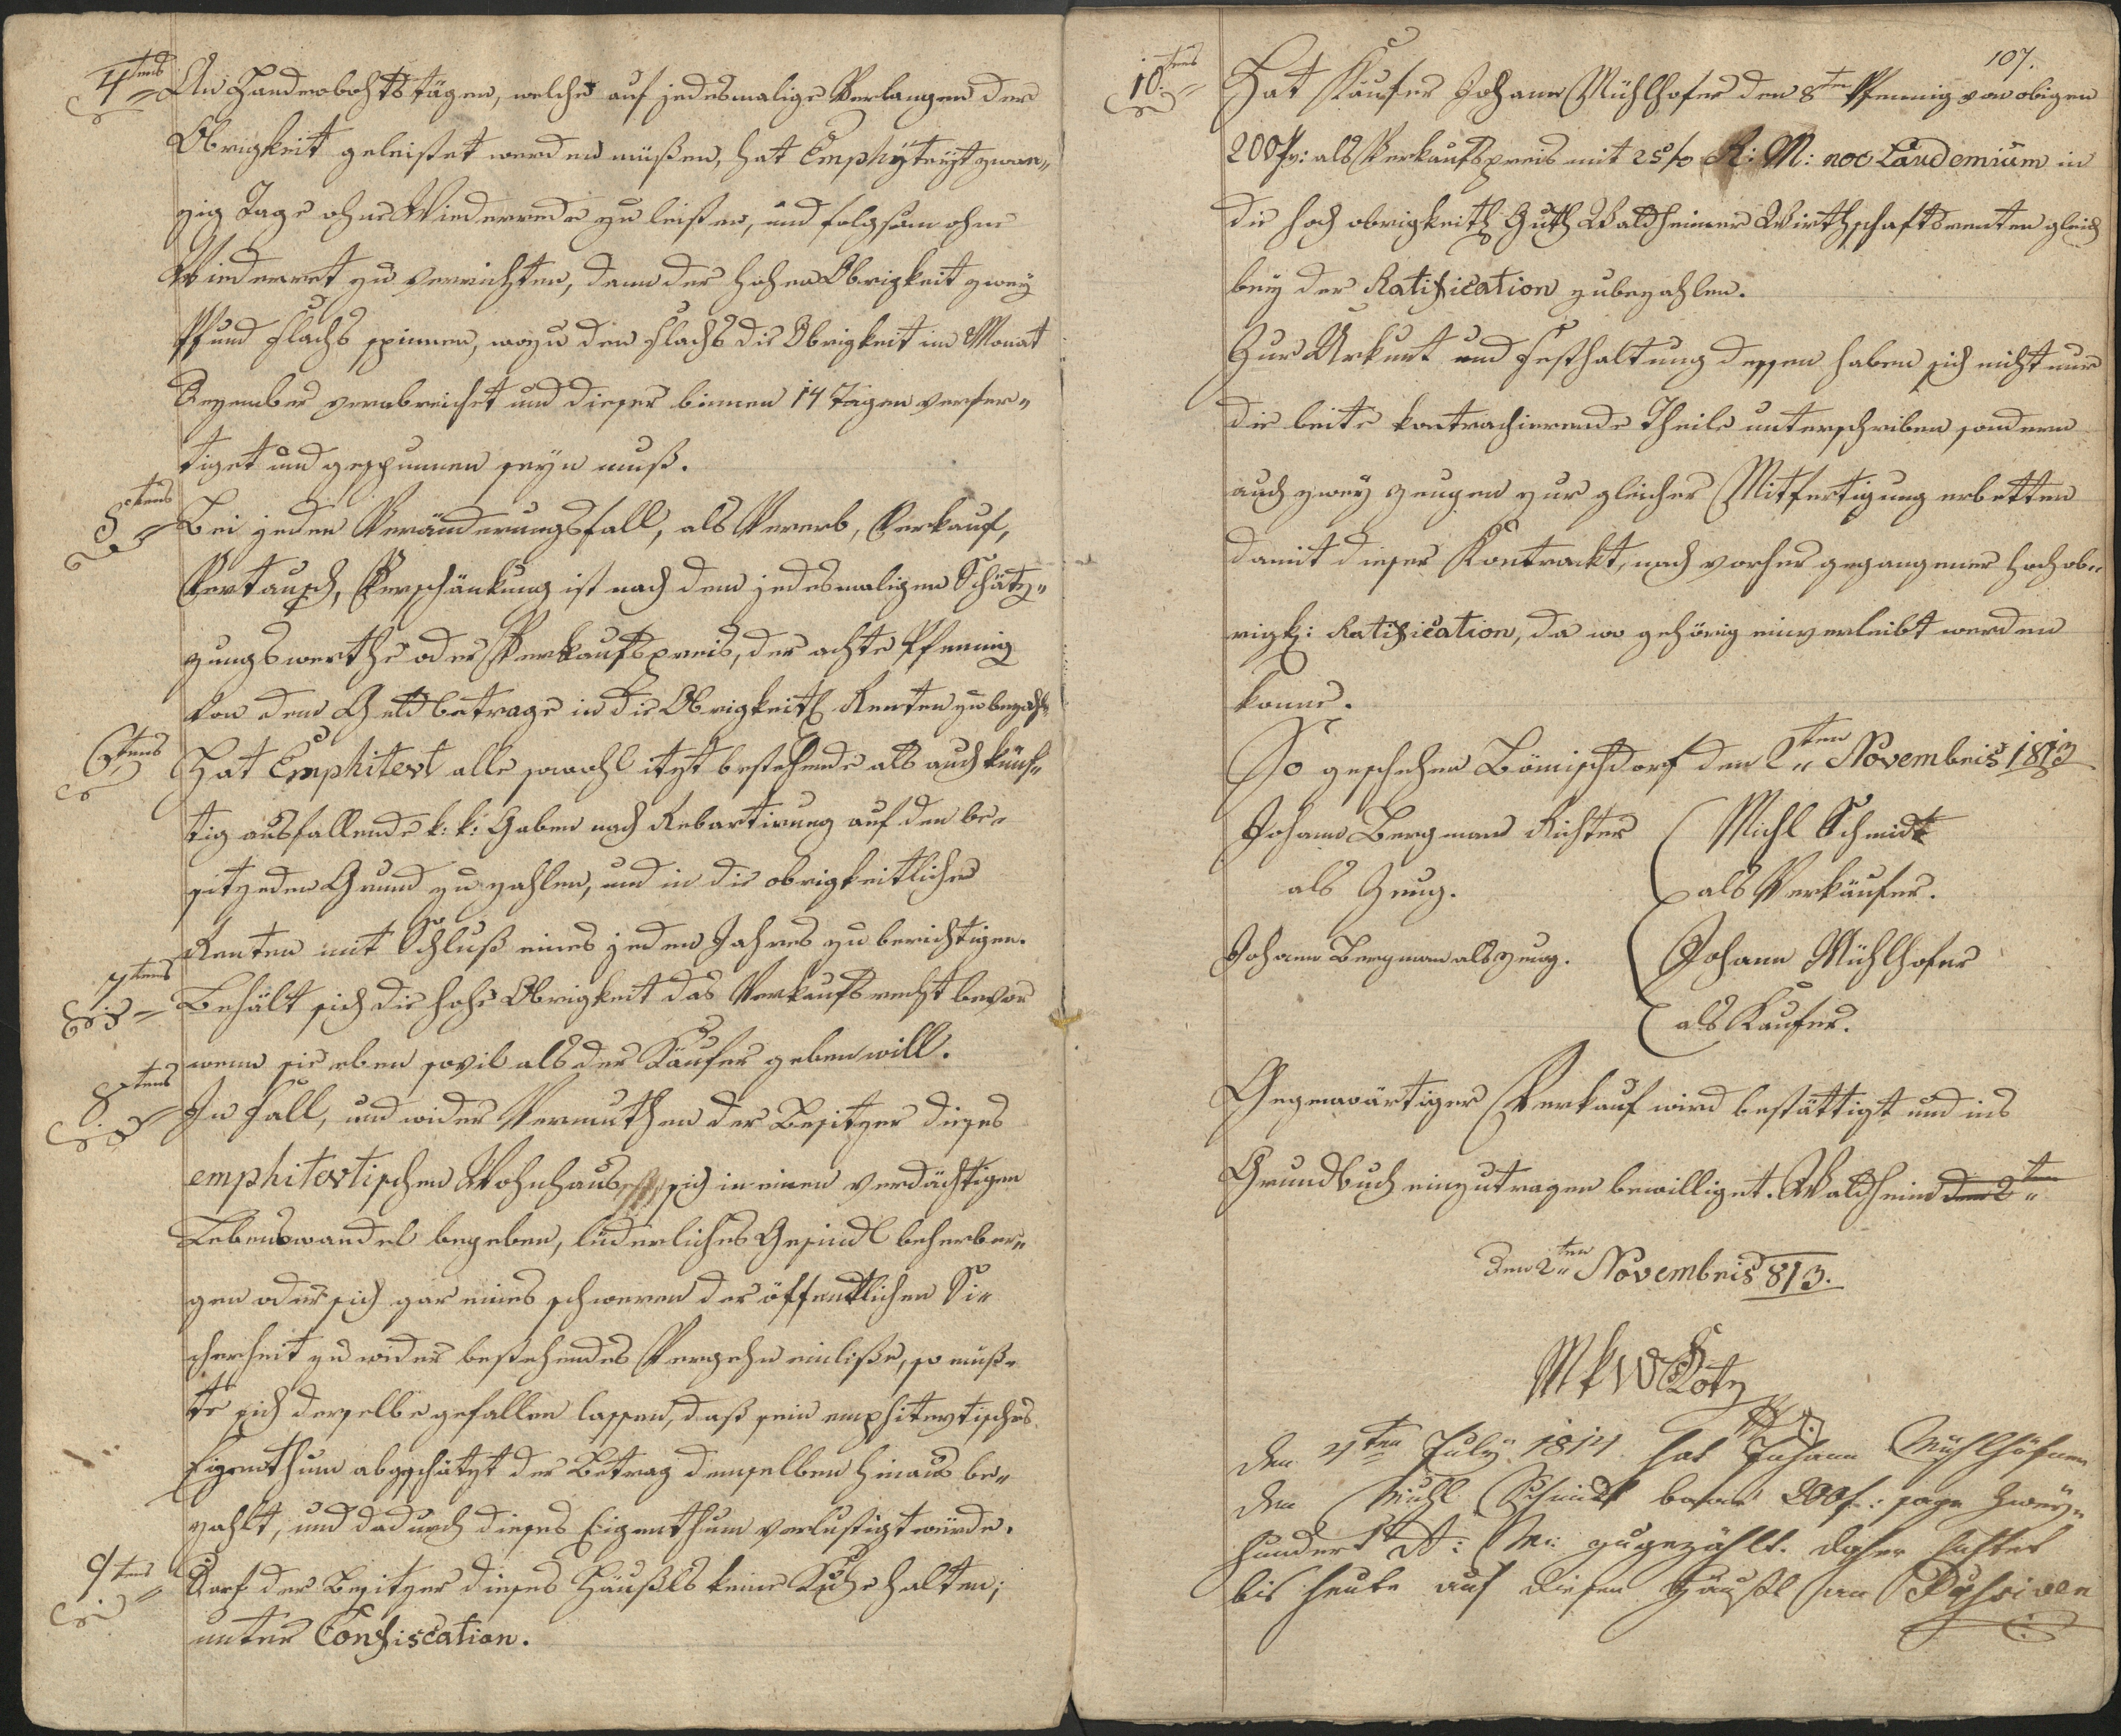 4tens An Handrobohtstägen, welche auf jedesmalige Verlangen der
Obrigkeit geleistet werden müßen, hat Emphÿteÿt zwan„
zig Tage ohne Wiederrede zu leisten, und folgsam ohne
Wiederret zu verrichten, dann der hohen Obrigkeit zweÿ
Pfund Flachs spinnen, wozu den Flachs die Obrigkeit im Monat
Dezember verabreichet und dieser binnen 14 Tägen verfer„
tiget und gespunnen seÿn muß.
5tens Bei jeden Veränderungsfall, als Vererb, Verkauf,
Vertausch, Verschänkung ist nach dem jedesmaligen Schätz„
zungswerthe oder Verkaufspreis, der achte Pfennig
von dem Geldbetrage in die Obrigkeitl Renten zu bezahl
6tens Hat Emphitevt alle sowohl itzt bestehende als auch künf„
tig ausfallende k: k: Gaben nach Rebartirung auf den be„
sitzeden Grund zu zahlen, und in die obrigkeitlichen
Renten mit Schluß eines jeden Jahres zu berichtigen.
7tens Behält sich die hohe Obrigkeit das Verkaufsrecht bevor
wenn sie eben sovil als der Käufer geben will.
8tens In Fall, und wider Vermuthen der Besitzer dieses
emphitevtischen Wohnhaus sich in einen verdächtigen
Lebenswandel begeben, liederliches Gesindl beherber„
gen oder sich gar eines schweren der öffentlichen Si„
cherheit zu wider bestehendes Vergehn einliße, so müß„
te sich derselbe gefallen lassen, daß sein emphitevtisches
Eigenthum abgeschätzt der Betrag demselben hinaus be„
zahlt, und dadurch dieses Eigenthum verlustigt würde.
9tens Darf der Besitzer dieses Häußls keine Kuhe halten,
unter Confiscation.
107.
10tens Hat Käufer Johann Mühlhofer den 8ten Pfennig von obigen
200 fr: als Verkaufspreis mit 25 fr: R: M: noe Laudemium in
die hoch obrigkeitl Guth Waldheimer Wirthschaftsrenten gleich
beÿ der Ratification zubezahlen.
Zur Urkunt und Festhaltung dessen haben sich nicht nur
die beite kontrachierende Theile unterschriben sondern
auch zweÿ Zeugen zur gleicher Mitfertigung erbetten
damit dieser Kontrackt, nach vorher gegangener hochob„
rigk: Ratification, da wo gehörig einverleibt werden
könne.
So geschehen Bömischdorf den 2ten Novembris 1813
Johann Bergmann Richter Michl Schmidt
als Zeug. als Verkäufer.
Johann Bergman als Zeug. Johann Mühlhofer
als Käufer.
Gegenwärtiger Verkauf wird bestättigt und ins
Grundbuch einzutragen bewilliget. Waldheim den 2ten
den 2ten Novembris 813.
den 4ten Julÿ 1814 hat Johann Mühlhöfner
den Michl Schmidt baar 200 f: sage Zweÿ„
hundert f: W: zugezählt. daher haftet
bis heute auf diesen Häußl an Passiven